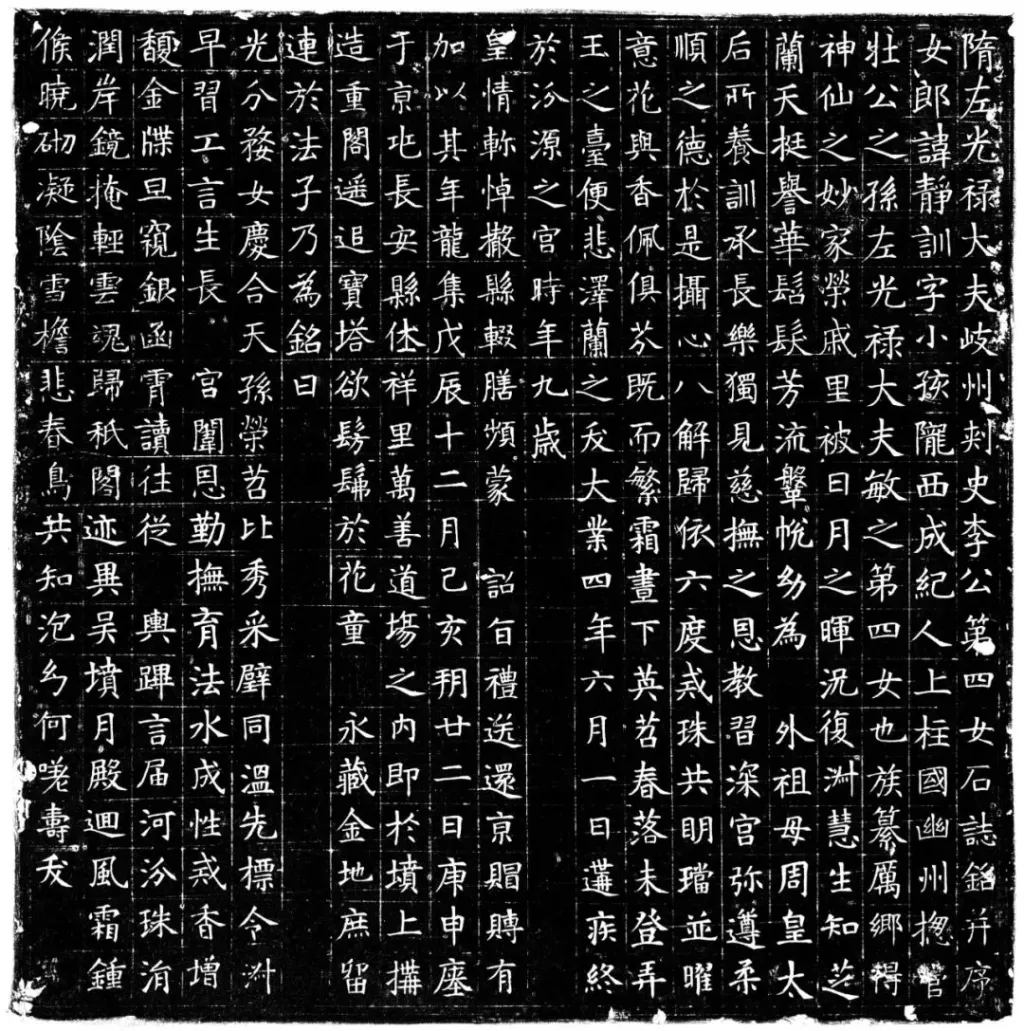 隋左光禄大夫岐州刾史李公第四女石誌銘并序
女郎諱靜訓字小孩隴西成紀人上柱國幽州揔管
壮公之孫左光禄大夫敏之第四女也族纂厲鄉得
神仙之妙家榮戚里被日月之暉況復淋慧生知芝
蘭天挺譽華髫髮芳流鞶帨幼為 外祖母周皇太
后所養訓承長樂獨見慈撫之恩教習深宮弥遵柔
順之德於是攝心八解歸依六度戒珠共明璫並曜
意花與香佩俱芬既而繁霜晝下英苕春落未登弄
玉之臺便悲澤蘭之夭大業四年六月一日遘疾終
於汾源之宮時年九歳
皇情軫悼撤縣輟膳頻蒙 詔旨禮送還京賵賻有
加以其年龍集戊辰十二月己亥朔廿二日庚申瘞
于京兆長安縣休祥里萬善道場之内即於墳上搆
造重閣遥追寶塔欲髣髴於花童 永藏金地庶留
連於法子乃為銘曰
光分婺女慶合天孫榮苕比秀采璧同溫先標令淋
早習工言生長 宮闈恩勤撫育法水成性戒香増
馥金牒旦窺銀函霄讀往從 輿蹕言届河汾珠涓
潤岸鏡掩輕雲魂歸秖閣迹異吴墳月殿迴風霜鍾
候曉砌凝陰雪檐悲春鳥共知泡幻何嗟壽夭